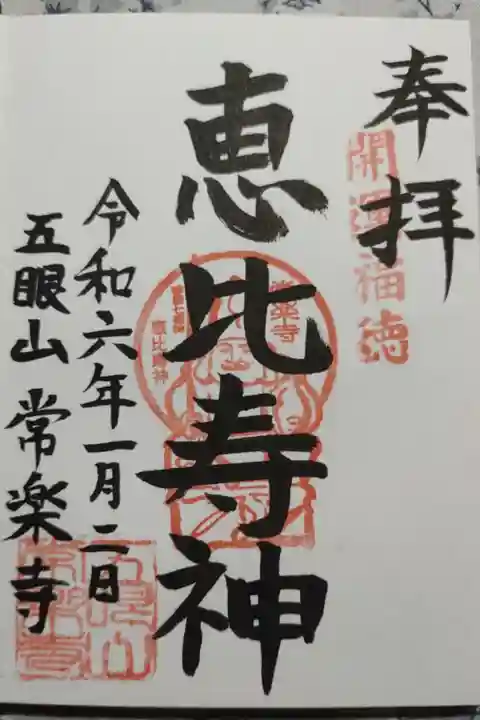 奉拝
開運福徳
恵比寿神
常楽寺
恵比寿神
令和六年一月二日
五眼山常楽寺
五眼山
常楽寺